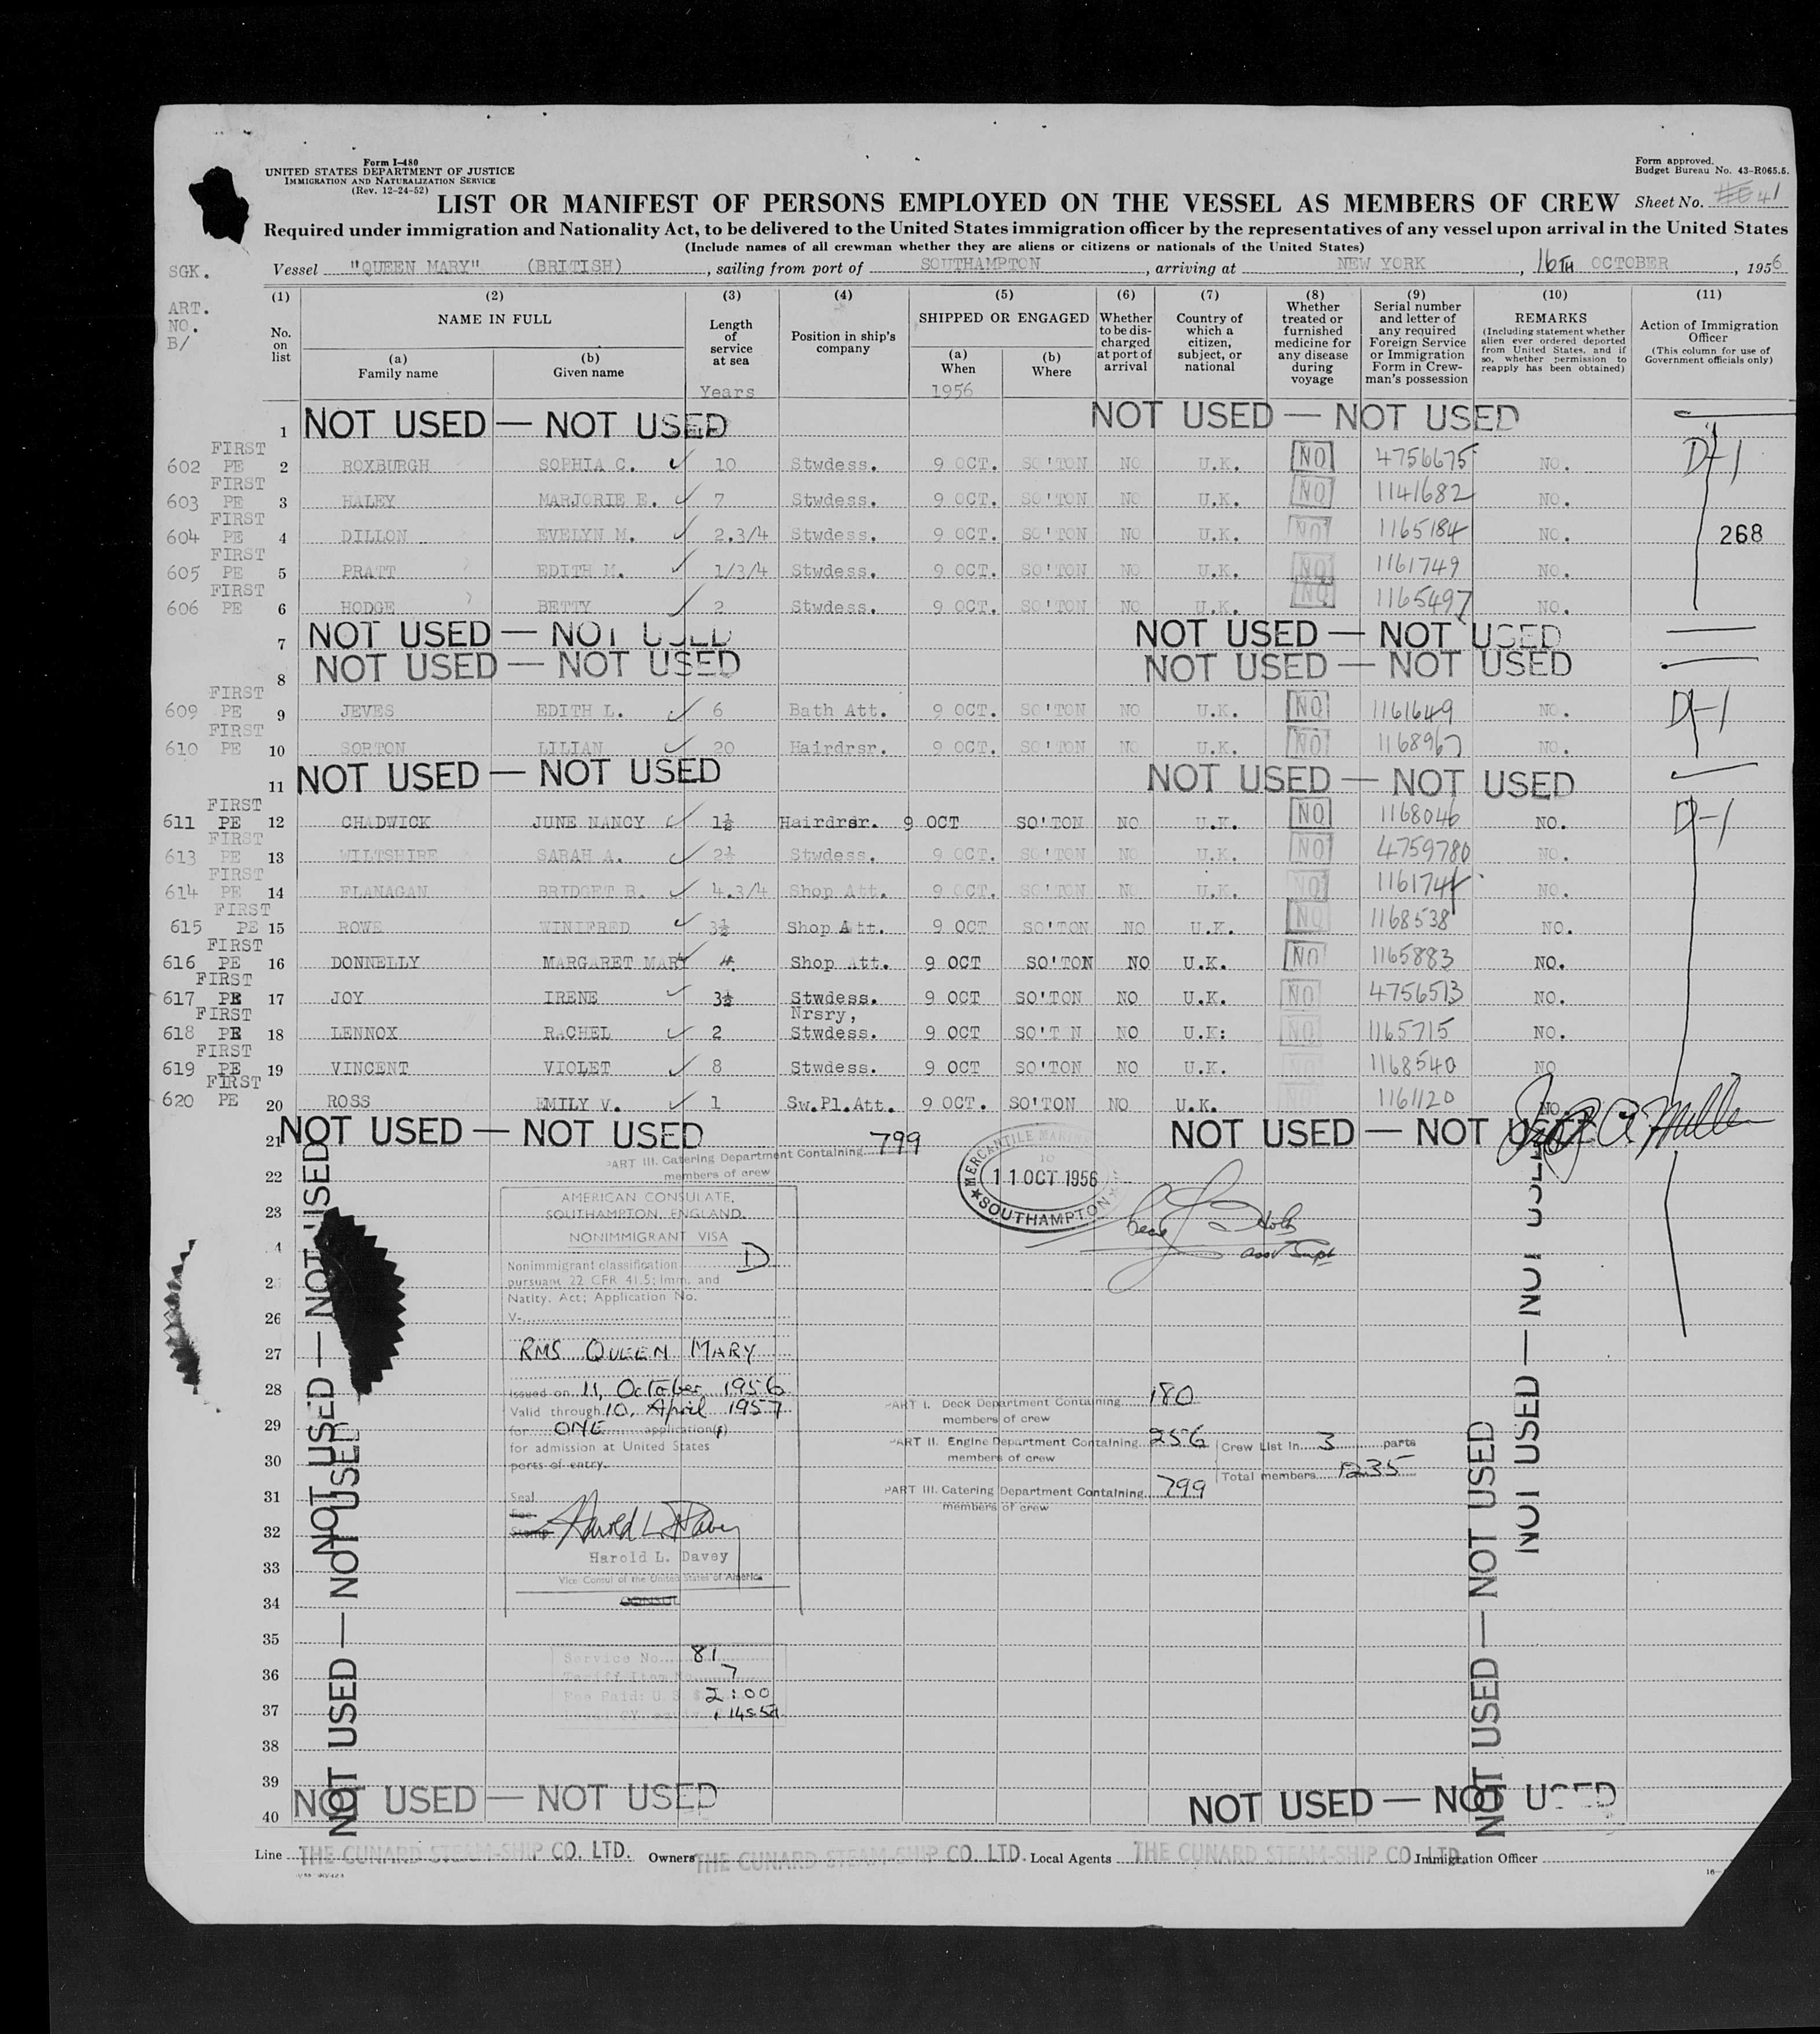 Form I-480
UNITED STATES DEPARTMENT OF JUSTICE
IMMIGRATION AND NATURALIZATION SERVICE
(Rev. 12-24-52)
Form approved.
Budget Bureau No. 43-R065.5.
LIST OR MANIFEST OF PERSONS EMPLOYED ON THE VESSEL AS MEMBERS OF CREW
Sheet No. 41
Required under immigration and Nationality Act, to be delivered to the United States immigration officer by the representatives of any vessel upon arrival in the United States
(Include names of all crewman whether they are aliens or citizens or nationals of the United States)
SGK. Vessel "QUEEN MARY" (BRITISH), sailing from port of SOUTHAMPTON, arriving at NEW YORK, 16TH OCTOBER, 1956
ART. NO. B/
(1) No. on list
(2) NAME IN FULL
(a) Family name
(b) Given name
(3) Length of service at sea
Years
(4) Position in ship's company
(5) SHIPPED OR ENGAGED
(a) When
1956
(b) Where
(6) Whether to be discharged at port of arrival
(7) Country of which a citizen, subject, or national
(8) Whether treated or furnished medicine for any disease during voyage
(9) Serial number and letter of any required Foreign Service or Immigration Form in Crewman's possession
(10) REMARKS
(Including statement whether alien ever ordered deported from United States, and if so, whether permission to reapply has been obtained)
(11) Action of Immigration Officer
(This column for use of Government officials only)
1 NOT USED — NOT USED NOT USED — NOT USED
602 FIRST PE 2 ROXBURGH SOPHIA C. 10 Stwdess. 9 OCT. SO'TON NO U.K. NO 4756675 NO. D-1
603 FIRST PE 3 HALEY MARJORIE E. 7 Stwdess. 9 OCT. SO'TON NO U.K. NO 1141682 NO.
604 FIRST PE 4 DILLON EVELYN M. 2.3/4 Stwdess. 9 OCT. SO'TON NO U.K. NO 1165184 NO. 268
605 FIRST PE 5 PRATT EDITH M. 1/3/4 Stwdess. 9 OCT. SO'TON NO U.K. NO 1161749 NO.
606 FIRST PE 6 HODGE BETTY 2 Stwdess. 9 OCT. SO'TON NO U.K. NO 1165497 NO.
7 NOT USED — NOT USED NOT USED — NOT USED
8 NOT USED — NOT USED NOT USED — NOT USED
609 FIRST PE 9 JEVES EDITH L. 6 Bath Att. 9 OCT. SO'TON NO U.K. NO 1161649 NO. D-1
610 FIRST PE 10 SORTON LILIAN 20 Hairdrsr. 9 OCT. SO'TON NO U.K. NO 1168967 NO.
11 NOT USED — NOT USED NOT USED — NOT USED
611 FIRST PE 12 CHADWICK JUNE NANCY 1½ Hairdrsr. 9 OCT SO'TON NO U.K. NO 1168046 NO. D-1
613 FIRST PE 13 WILTSHIRE SARAH A. 2½ Stwdess. 9 OCT. SO'TON NO U.K. NO 4759780 NO.
614 FIRST PE 14 FLANAGAN BRIDGET B. 4.3/4 Shop Att. 9 OCT. SO'TON NO U.K. NO NO.
615 FIRST PE 15 ROWE WINIFRED 3½ Shop Att. 9 OCT SO'TON NO U.K. NO 1168538 NO.
616 FIRST PE 16 DONNELLY MARGARET MARY 4. Shop Att. 9 OCT SO'TON NO U.K. NO 1165883 NO.
617 FIRST PE 17 JOY IRENE 3½ Stwdess. 9 OCT SO'TON NO U.K. NO 4756513 NO.
618 FIRST PE 18 LENNOX RACHEL 2 Nrsry, Stwdess. 9 OCT SO'T N NO U.K: NO 1165715 NO.
619 FIRST PE 19 VINCENT VIOLET 8 Stwdess. 9 OCT SO'TON NO U.K. NO 1168540 NO
620 FIRST PE 20 ROSS EMILY V. 1 Sw.Pl.Att. 9 OCT. SO'TON NO U.K. NO 1161120 NO.
21 NOT USED — NOT USED NOT USED — NOT USED
PART III. Catering Department Containing 799
members of crew
22
23
26
27
28
29
30
31
32
33
34
35
36
37
38
39
40
MERCANTILE MARINE
11 OCT 1956
SOUTHAMPTON
AMERICAN CONSULATE,
SOUTHAMPTON, ENGLAND.
NONIMMIGRANT VISA
Nonimmigrant classification D
pursuant 22 CFR 41.5; Imm. and
Natity. Act; Application No.
V-
RMS QUEEN MARY
Issued on 11, October 1956
Valid through 10, April 1957
for ONE application(s)
for admission at United States
ports of entry.
Seal
Fee
Stamp
Harold L. Davey
Harold L. Davey
Vice Consul of the United States of America
CONSUL
PART I. Deck Department Containing 180
members of crew
PART II. Engine Department Containing 256
members of crew
PART III. Catering Department Containing 799
members of crew
Crew List in 3 parts
Total members 1235
Service No. 81
Tariff Item No. 7
Fee Paid: U.S. $ 2:00
NOT USED — NOT USED
NOT USED — NOT USED
NOT USED — NOT USED
NOT USED — NOT USED
NOT USED — NOT USED
NOT USED — NOT USED
Line THE CUNARD STEAM-SHIP CO. LTD. Owners THE CUNARD STEAM-SHIP CO. LTD. Local Agents THE CUNARD STEAM-SHIP CO. LTD. Immigration Officer